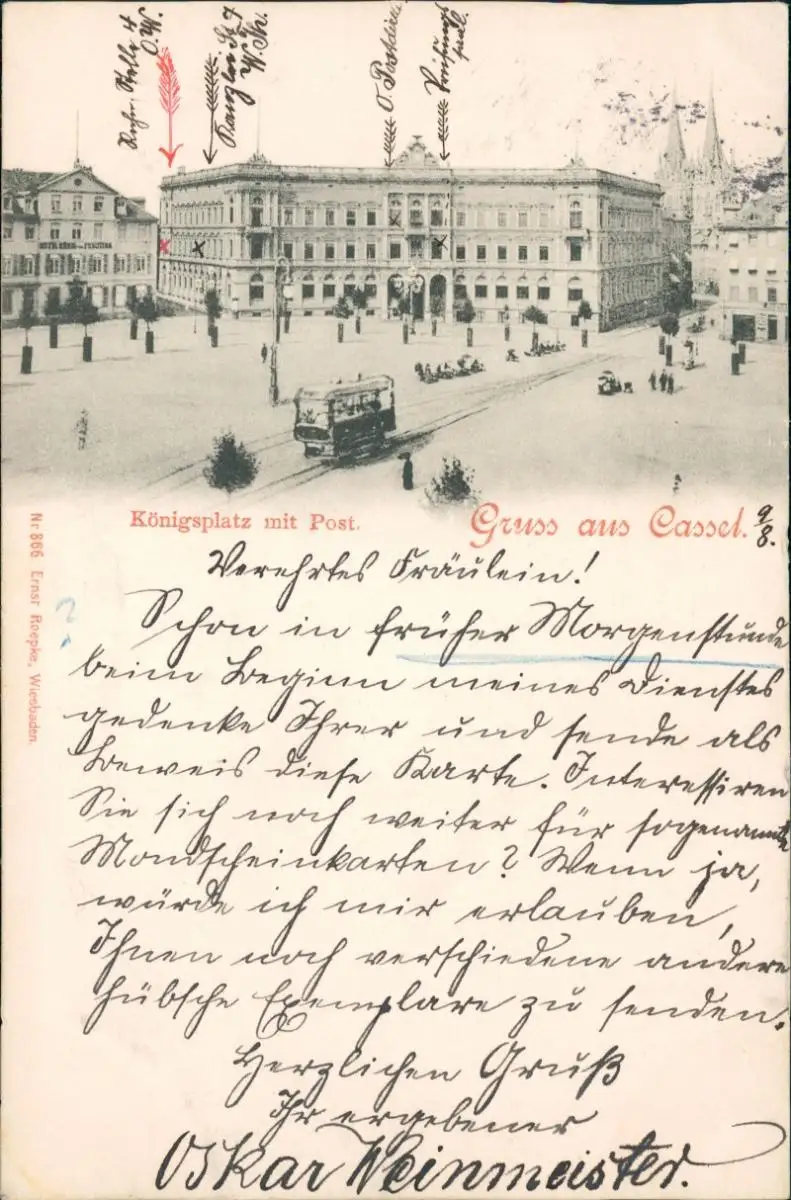 Stelle 4
O. W.
Kanzlei St 7
W. Th.
O Postdirec
Prüfungs
HOTEL KÖNIG von PREUSSEN
Königsplatz mit Post.
Gruss aus Cassel.
9/8.
Nr 866 Ernst Roepke, Wiesbaden.
Verehrtes Fräulein!
Schon in früher Morgenstunde
beim Beginn meines Dienstes
gedenke Ihrer und sende als
Beweis diese Karte. Interessiren
Sie sich noch weiter für sogenannte
Mondscheinkarten? Wenn ja,
würde ich mir erlauben,
Ihnen noch verschiedene andere
hübsche Exemplare zu senden.
Herzlichen Gruß
Ihr ergebener
Oskar Weinmeister.